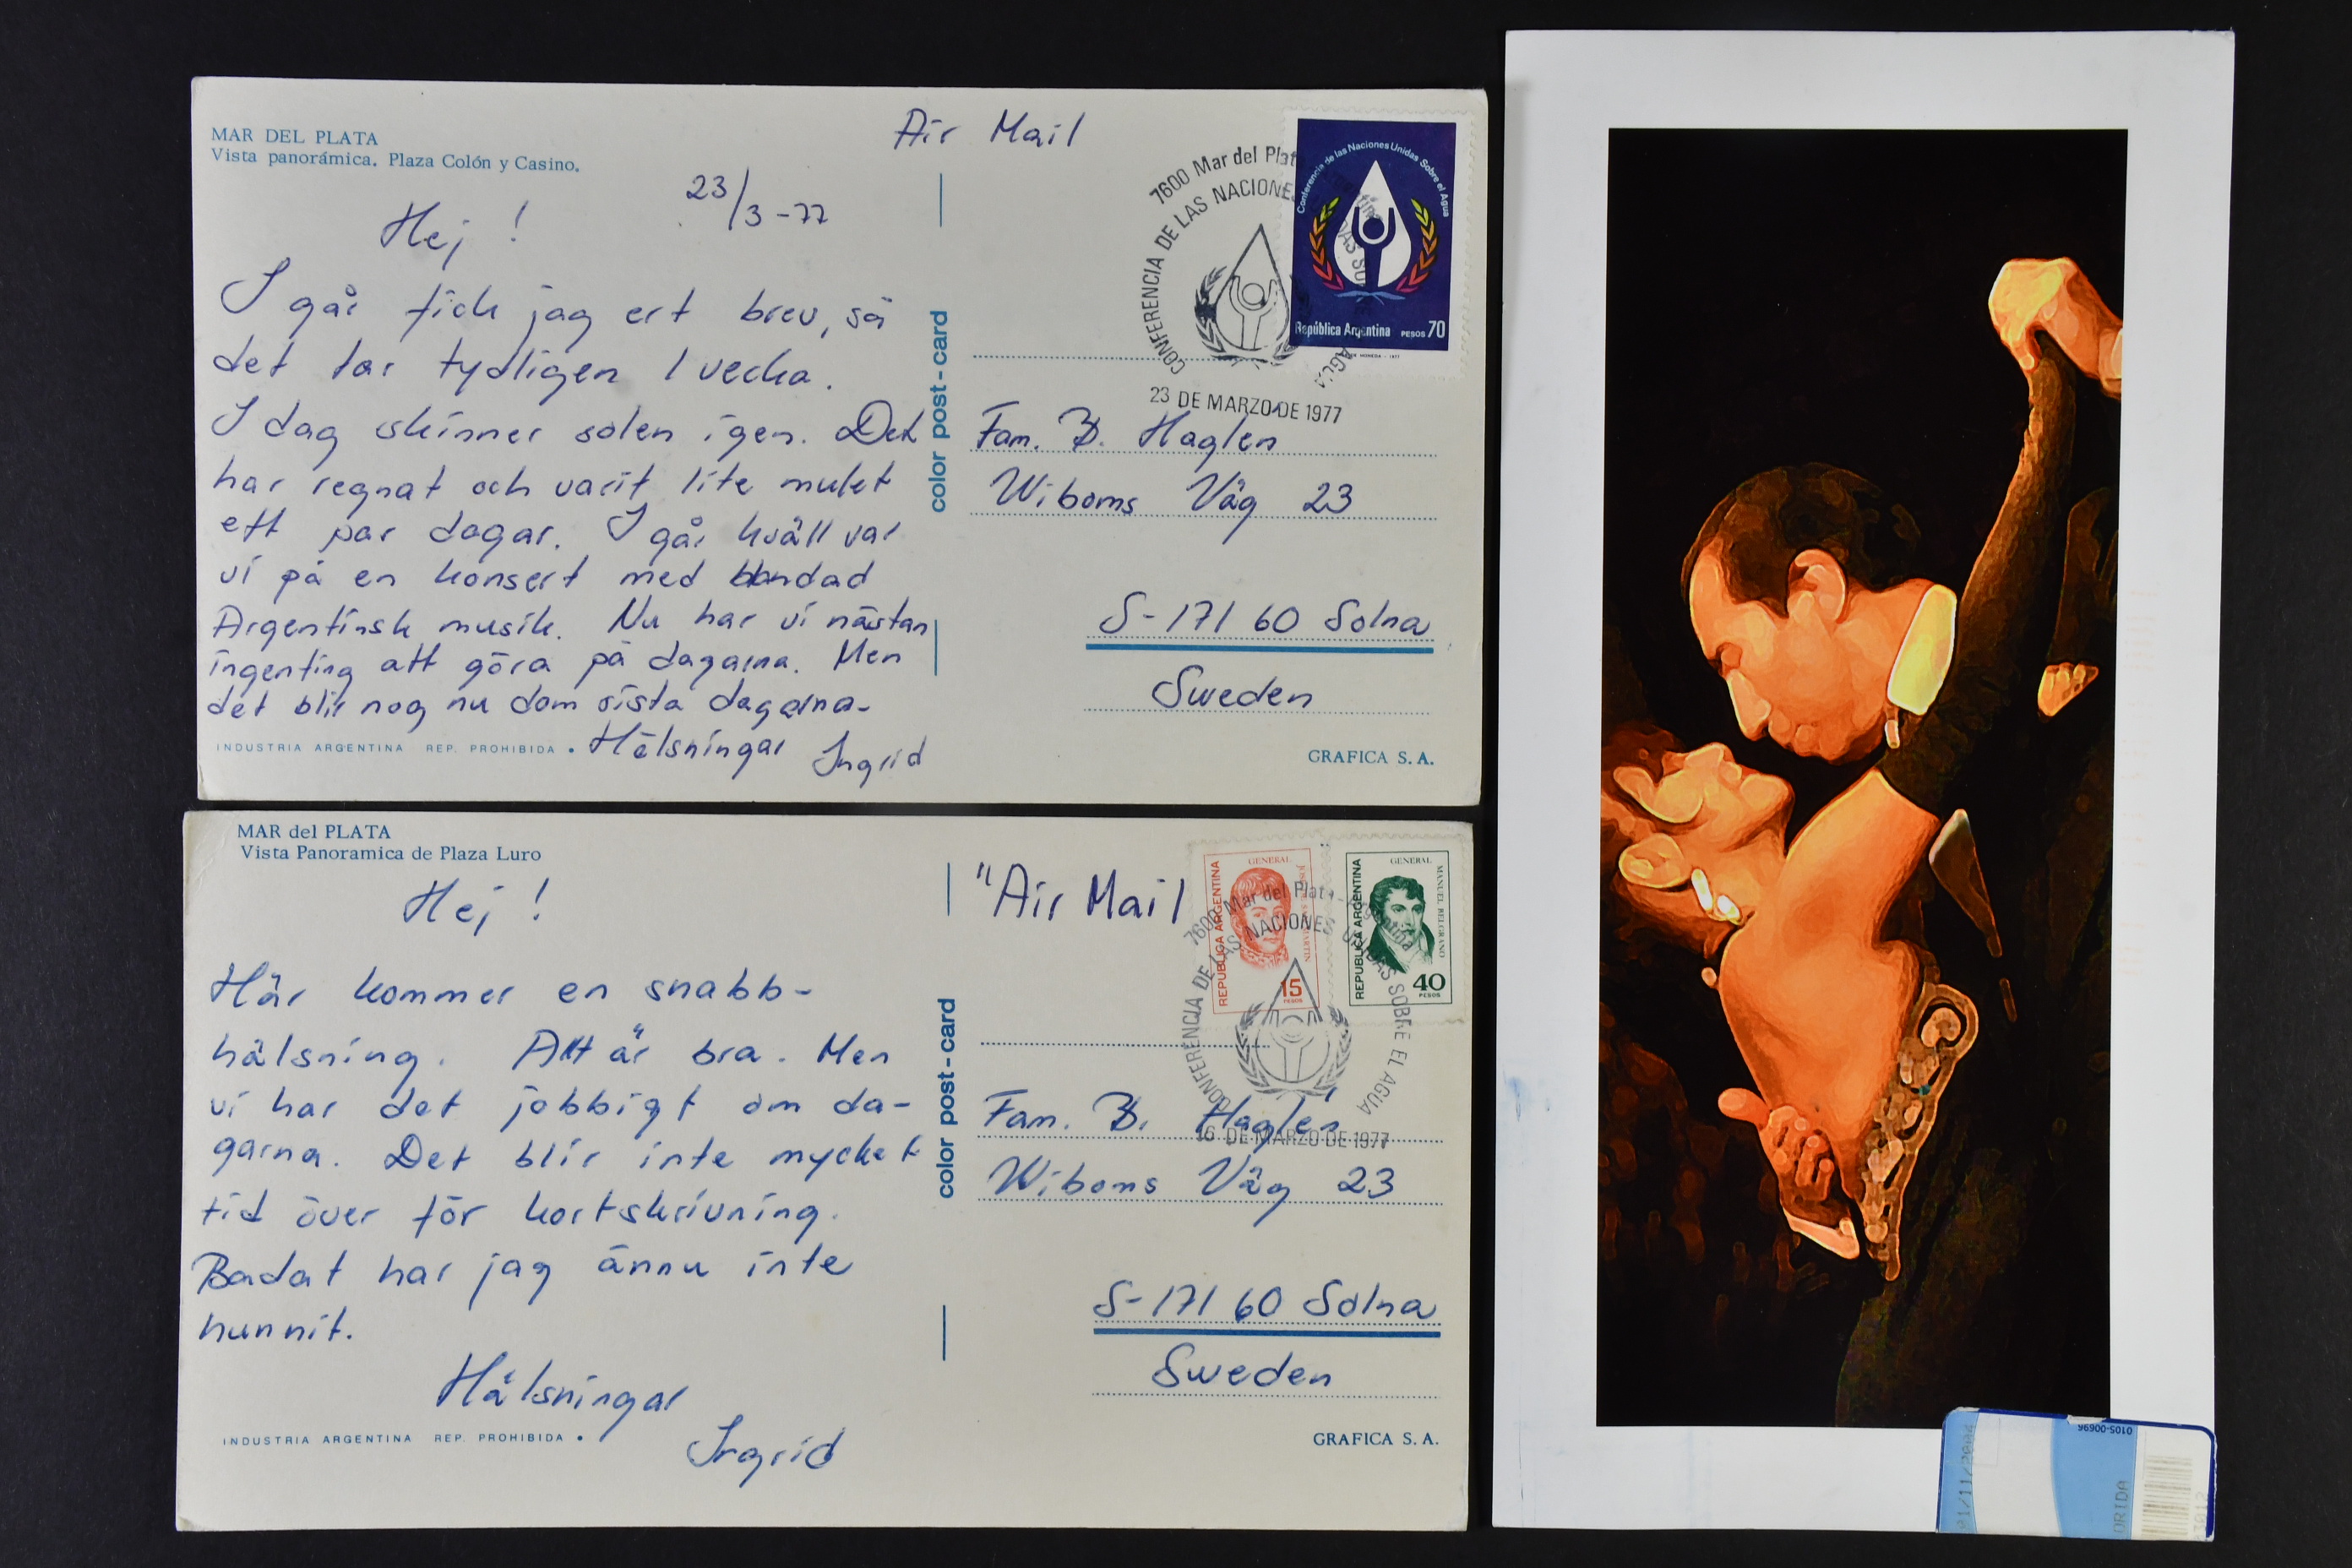 MAR DEL PLATA
Vista panorámica. Plaza Colón y Casino.
23/3-77
Hej !
I går fick jag ert brev, så
det tar tydligen 1 vecka.
I dag skinner solen igen. Det
har regnat och varit lite mulet
ett par dagar. I går kväll var
vi på en konsert med blandad
Argentinsk musik. Nu har vi nästan
ingenting att göra på dagarna. Men
det blir nog nu dom sista dagarna.
Hälsningar Ingrid
INDUSTRIA ARGENTINA REP. PROHIBIDA
color post-card
Air Mail
7600 Mar del Plat
CONFERENCIA DE LAS NACIONE
AGUA
23 DE MARZO DE 1977
Conferencia de las Naciones Unidas Sobre el Agua
República Argentina PESOS 70
Fam. B. Haglen
Wiboms Väg 23
S-171 60 Solna
Sweden
GRAFICA S.A.
MAR del PLATA
Vista Panoramica de Plaza Luro
Hej !
Här kommer en snabb-
hälsning. Allt är bra. Men
vi har det jobbigt om da-
garna. Det blir inte mycket
tid över för kortskrivning.
Badat har jag ännu inte
hunnit.
Hälsningar
Ingrid
INDUSTRIA ARGENTINA REP. PROHIBIDA
color post-card
"Air Mail
REPUBLICA ARGENTINA
GENERAL
15
PESOS
REPUBLICA ARGENTINA
GENERAL
MANUEL BELGRANO
40
PESOS
7600 Mar del Plata - Argentina
CONFERENCIA DE LAS NACIONES UNIDAS SOBRE EL AGUA
16 DE MARZO DE 1977
Fam. B. Haglén
Wiboms Väg 23
S-171 60 Solna
Sweden
GRAFICA S.A.
0105-00696
ORIDA